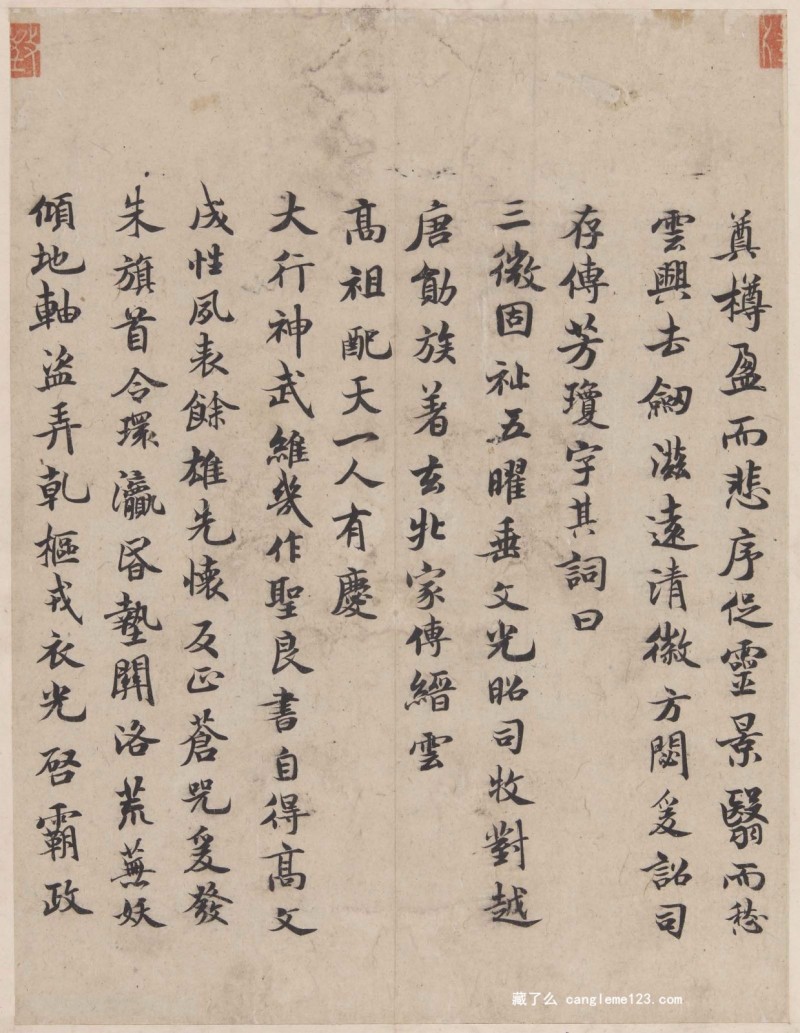 奠樽盈而悲序促靈景翳而愁
雲興去劒滋遠清徽方閟爰詔司
存傳芳瓊字其詞曰
三微固祉五曜垂文光昭司牧對越
唐勛族著玄牝家傳縉雲
髙祖配天一人有慶
大行神武維幾作聖良書自得髙文
成性夙表餘雄先懷反正蒼咒爰發
朱旗首令環瀛昏墊關洛荒蕪妖
傾地軸盜弄乹樞戎衣光啓霸政
藏了么 cangleme123.com